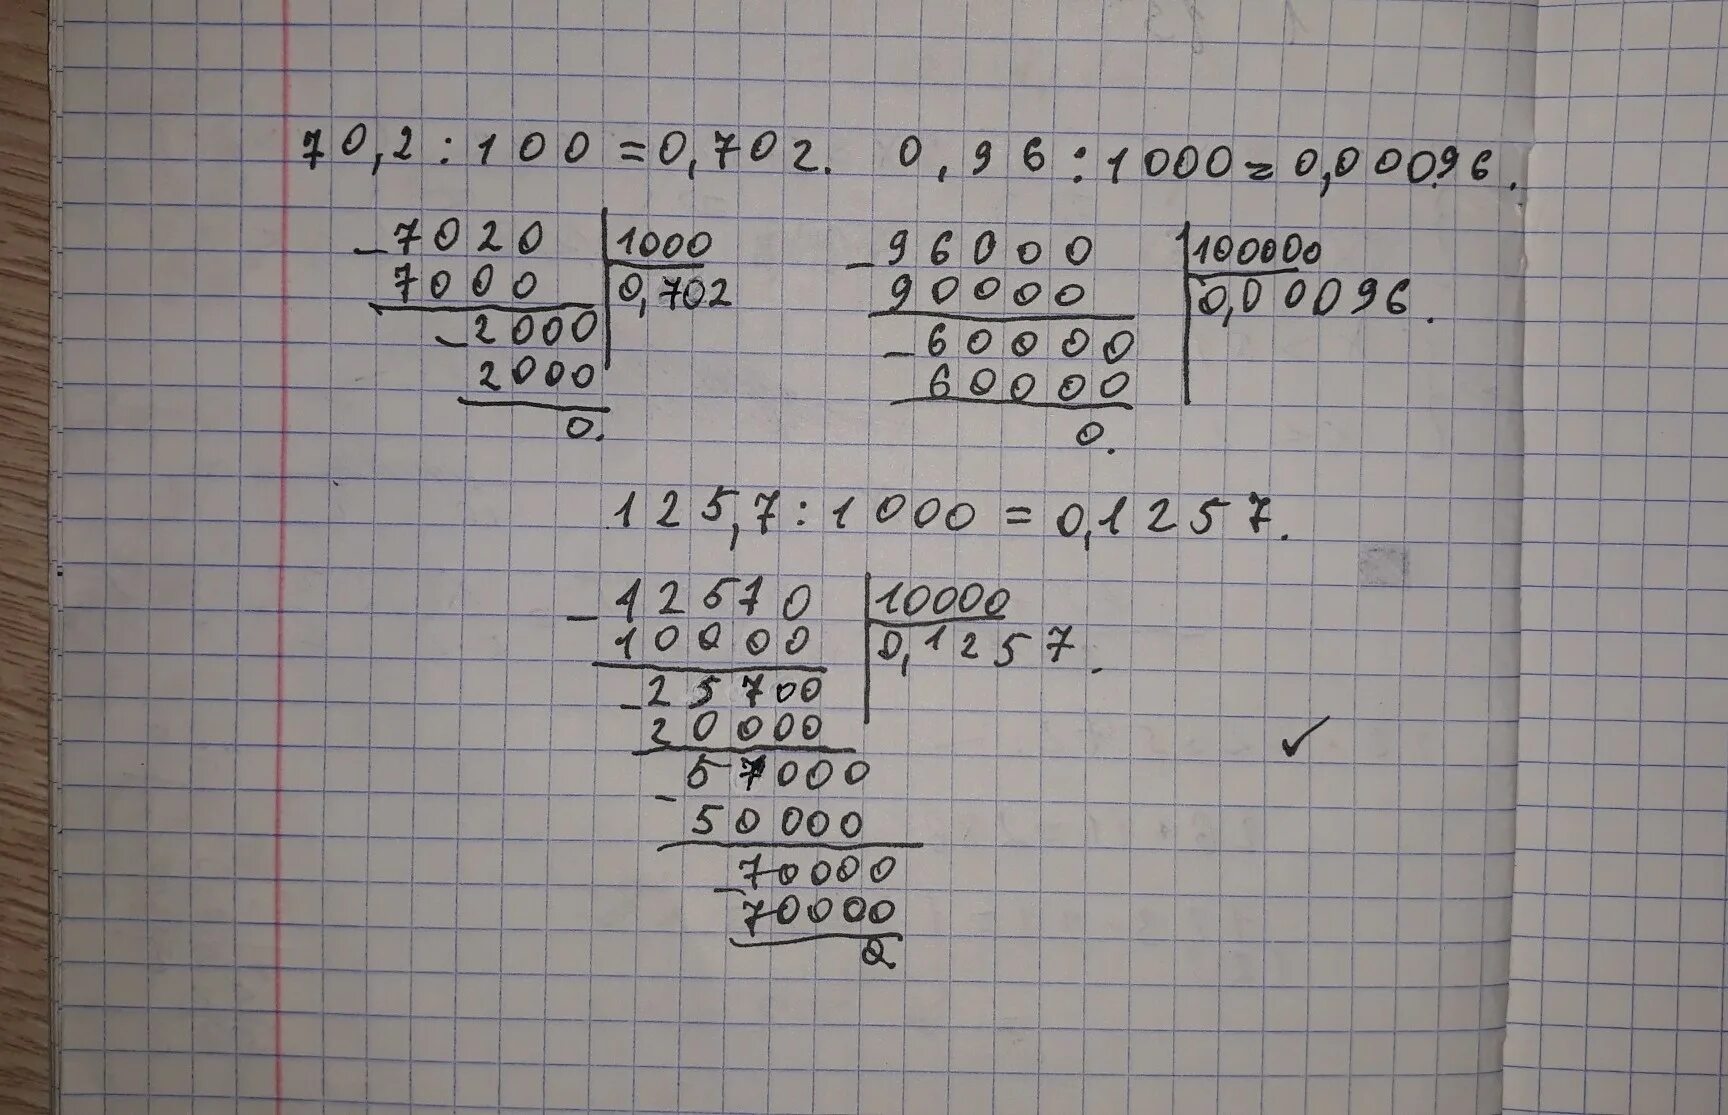 70,2 : 100 = 0,702. 0,96 : 1000 = 0,00096.
- 7020 | 1000
7000 | 0,702
- 2000
2000
0.
- 96000 | 100000
90000 | 0,00096.
- 60000
60000
0.
125,7 : 1000 = 0,1257.
- 12570 | 10000
10000 | 0,1257.
- 25700
20000
- 57000
50000
- 70000
70000
0
✓